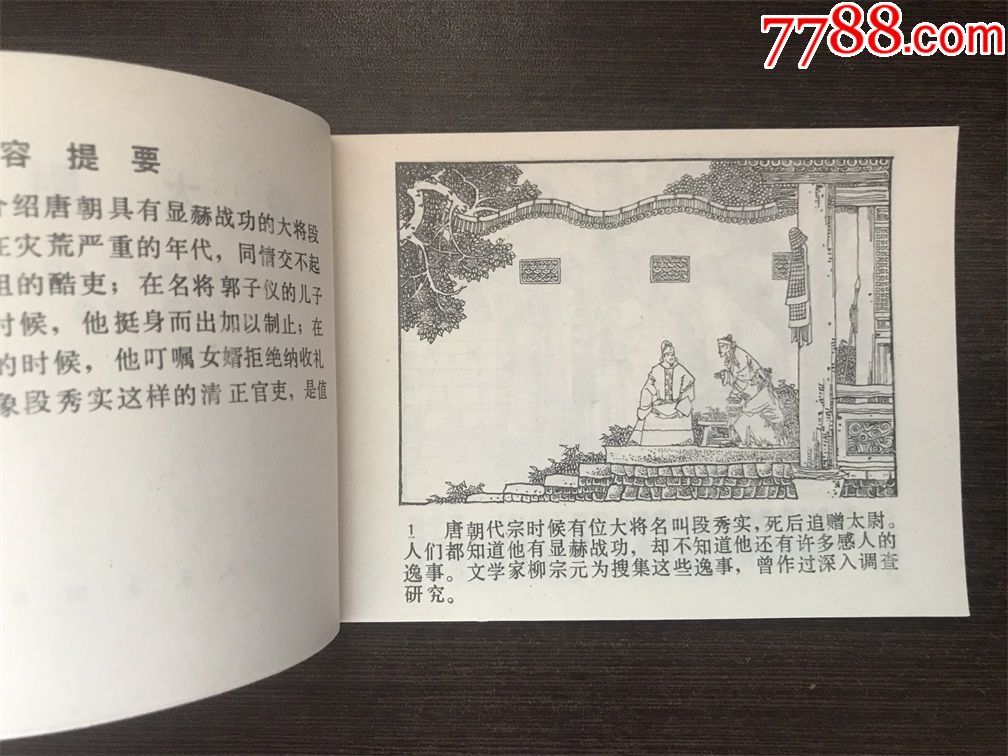 7788.com
容 提 要
介绍唐朝具有显赫战功的大将段
在灾荒严重的年代，同情交不起
租的酷吏；在名将郭子仪的儿子
时候，他挺身而出加以制止；在
的时候，他叮嘱女婿拒绝纳收礼
象段秀实这样的清正官吏，是值
1　唐朝代宗时候有位大将名叫段秀实，死后追赠太尉。
人们都知道他有显赫战功，却不知道他还有许多感人的
逸事。文学家柳宗元为搜集这些逸事，曾作过深入调查
研究。